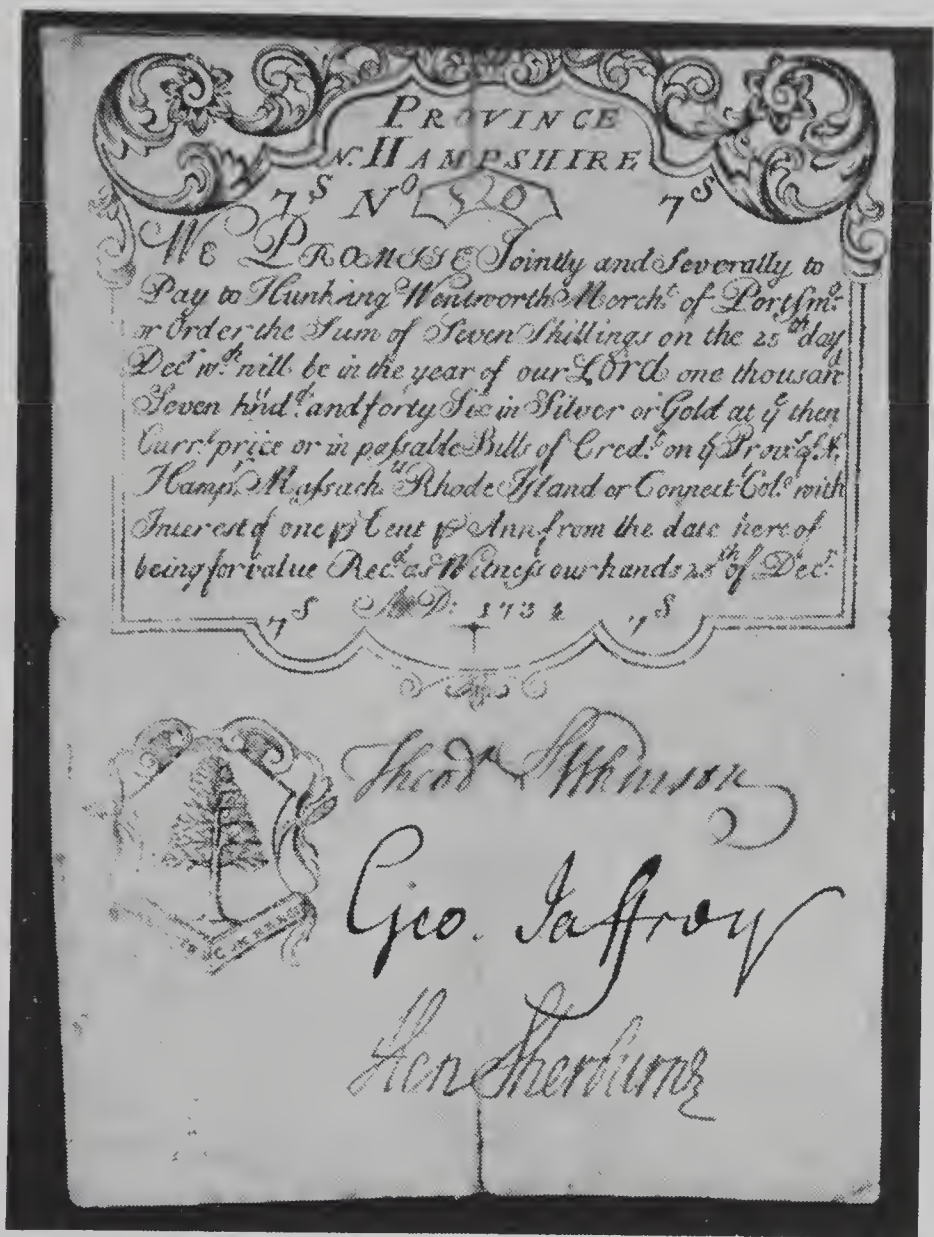 PROVINCE
N. HAMPSHIRE
7S No 520 7S
WE PROMISE Jointly and Severally to
Pay to Hunking Wentworth Mercht of Portsmo
or Order the Sum of Seven Shillings on the 25th day
Decr wch will be in the year of our LORD one thousand
Seven hndd and forty Six in Silver or Gold at ye then
Currt price or in passable Bills of Credt on ye Prove of N.
Hampr Massachts Rhode Island or Connect Col. with
Interest of one p Cent p Ann from the date here of
being for value Recd as Witness our hands 25th of Decr
7S A D: 1734 7S
Theodr Atkinson
Geo. Jaffrey
Hen Sherburne